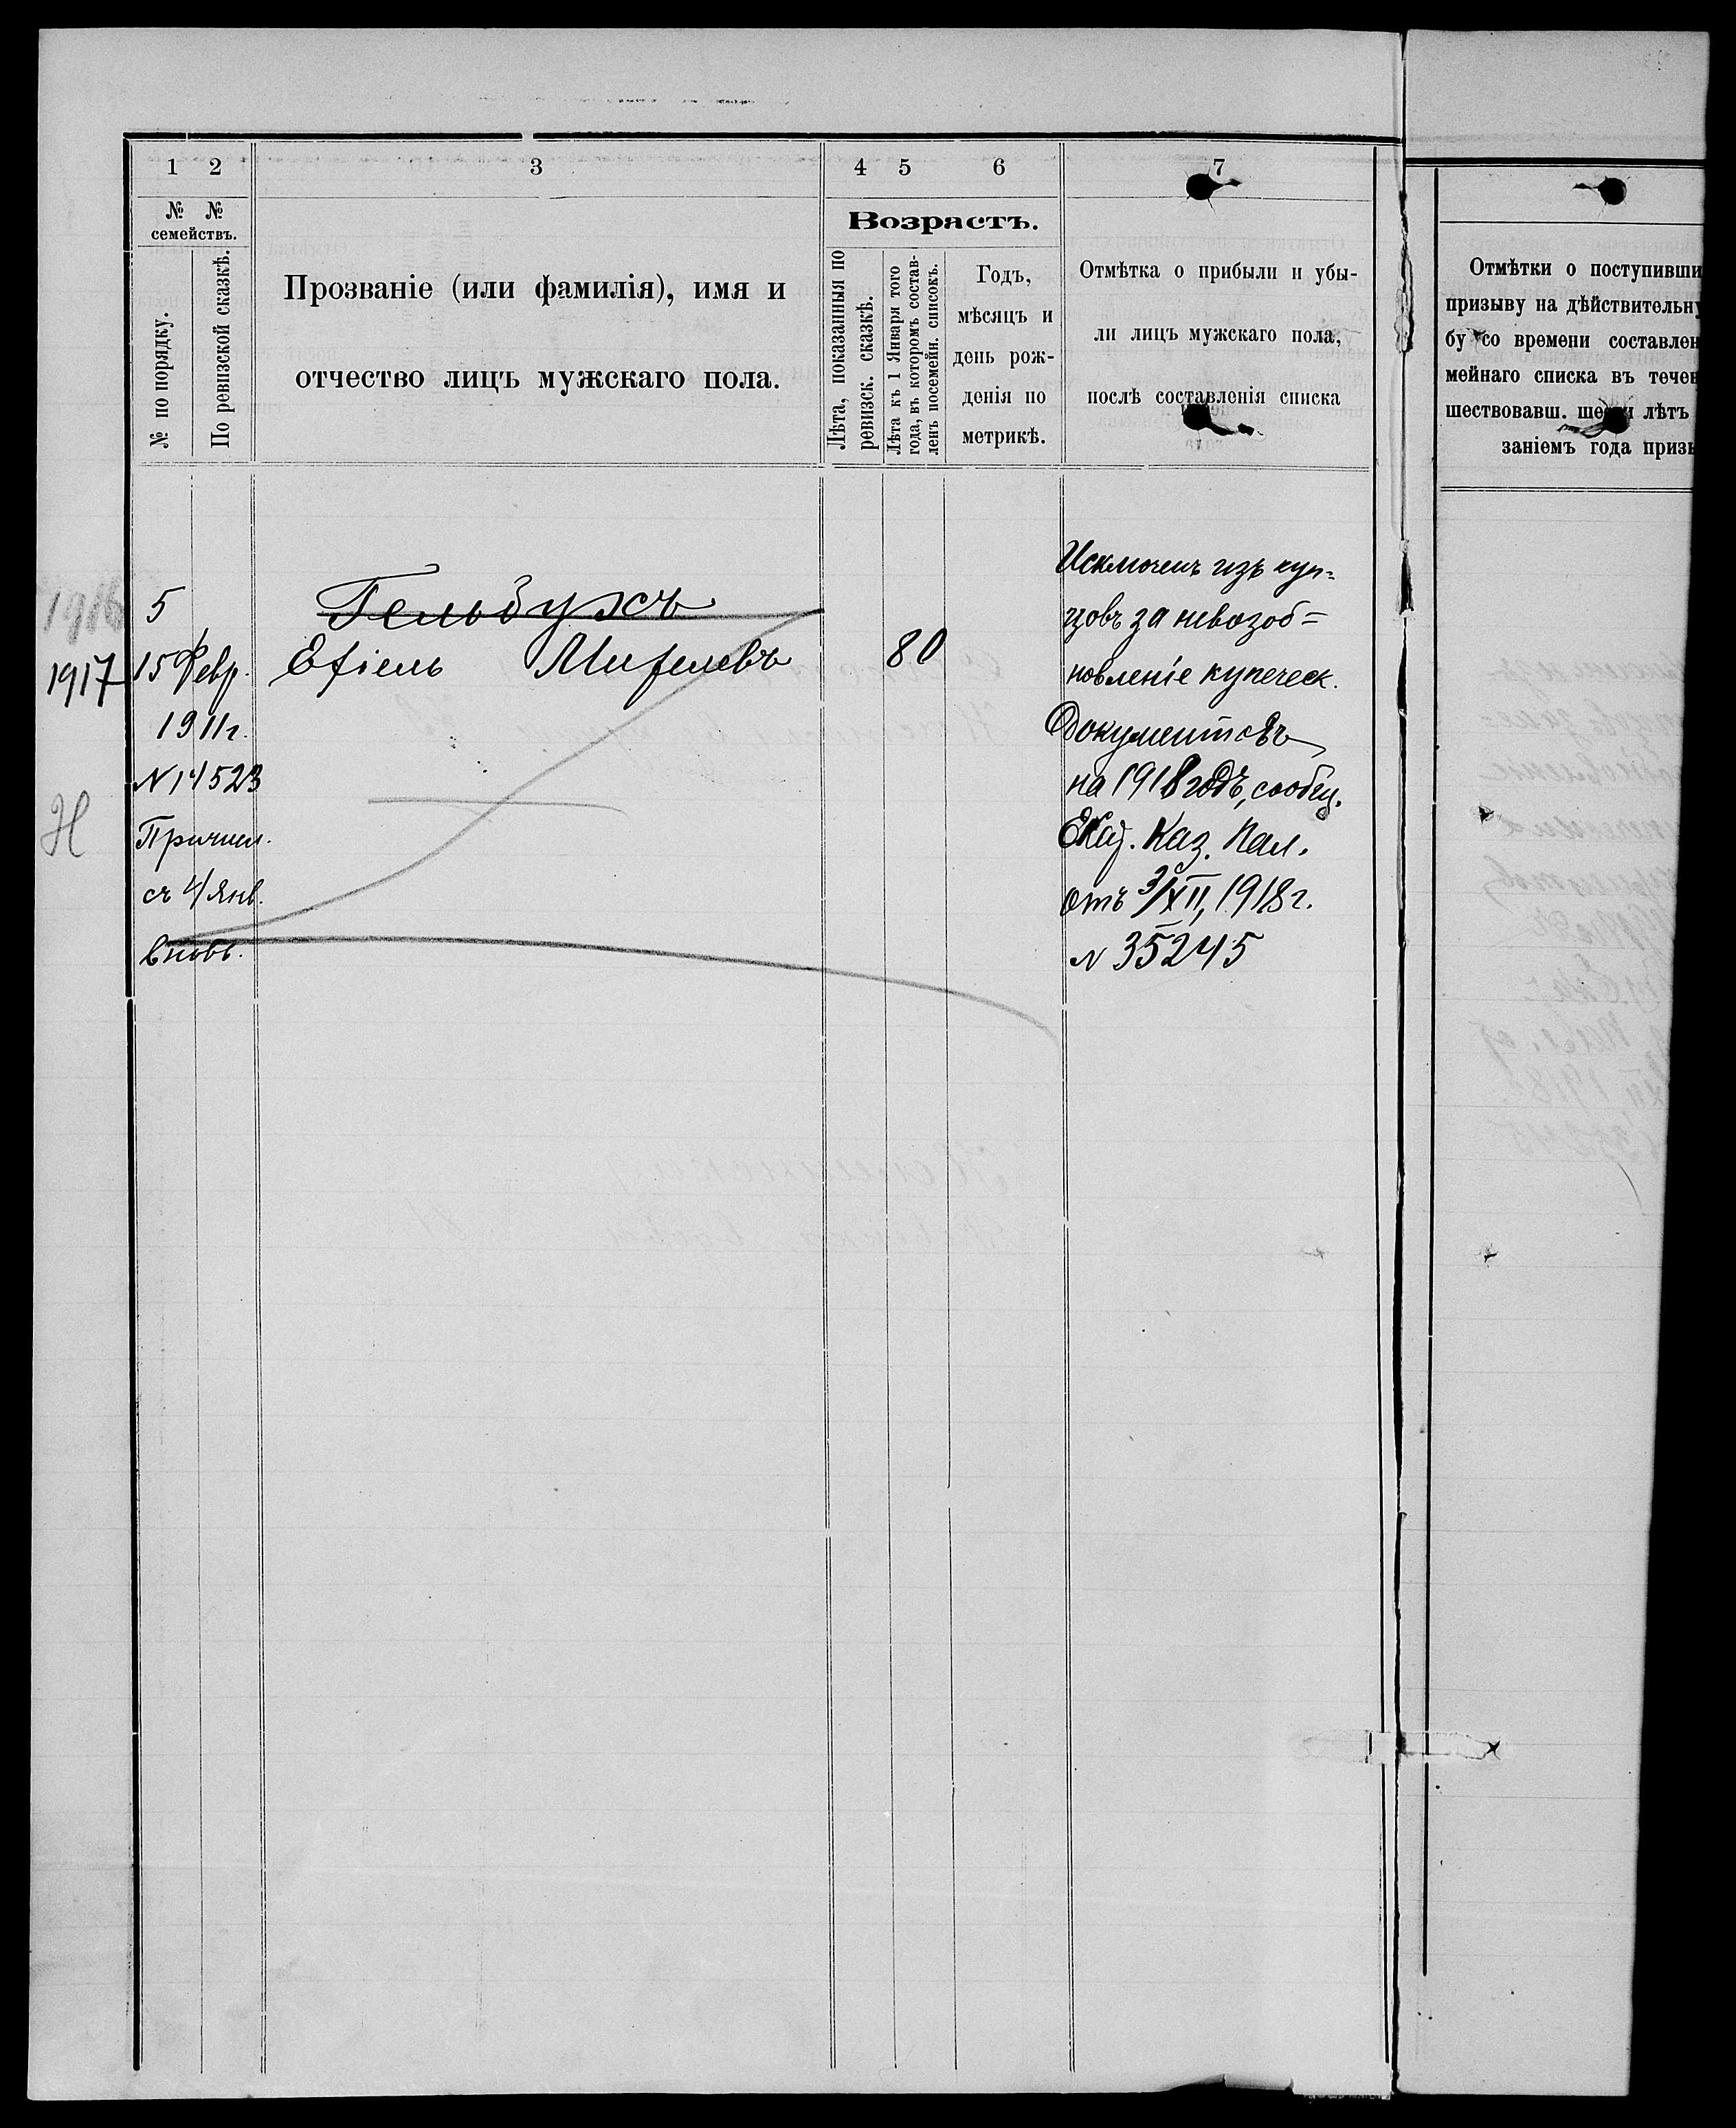 1 2 3 4 5 6 7
№ № семействъ.
№ по порядку.
По ревизской сказкѣ.
Прозваніе (или фамилія), имя и
отчество лицъ мужскаго пола.
Возрастъ.
Лѣта, показанныя по
ревизск. сказкѣ.
Лѣта къ 1 Января того
года, въ которомъ состав-
ленъ посемейн. списокъ.
Годъ,
мѣсяцъ и
день рож-
денія по
метрикѣ.
Отмѣтка о прибыли и убы-
ли лицъ мужскаго пола,
послѣ составленія списка
Отмѣтки о поступивши
призыву на дѣйствительну
бу со времени составлен
мейнаго списка въ течен
шествовавш. шести лѣтъ
заніемъ года призы
1916
1917
Н
5
15 Февр.
1911г.
N 14523
Причисл.
съ 4/ Янв.
вновь.
Гельбухъ
Ехіель Михелевъ
80
Исключенъ изъ куп=
цовъ за невозоб=
новленіе купеческ.
документовъ
на 1918 годъ, сообщ.
Екат. Каз. Пал.
отъ 3/XII, 1918 г.
N 35245